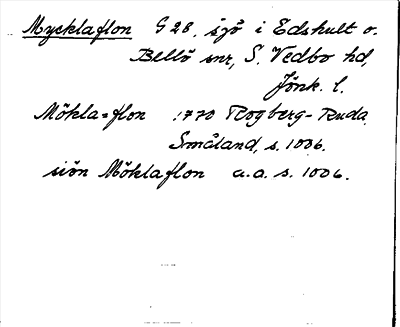 Mycklaflon G 28. sjö i Edshult o.
Bellö snr, S. Vedbo hd,
Jönk. l.
Mökla=flon 1770 Rogberg-Ruda,
Småland, s. 1006.
siön Möklaflon a.a. s. 1006.